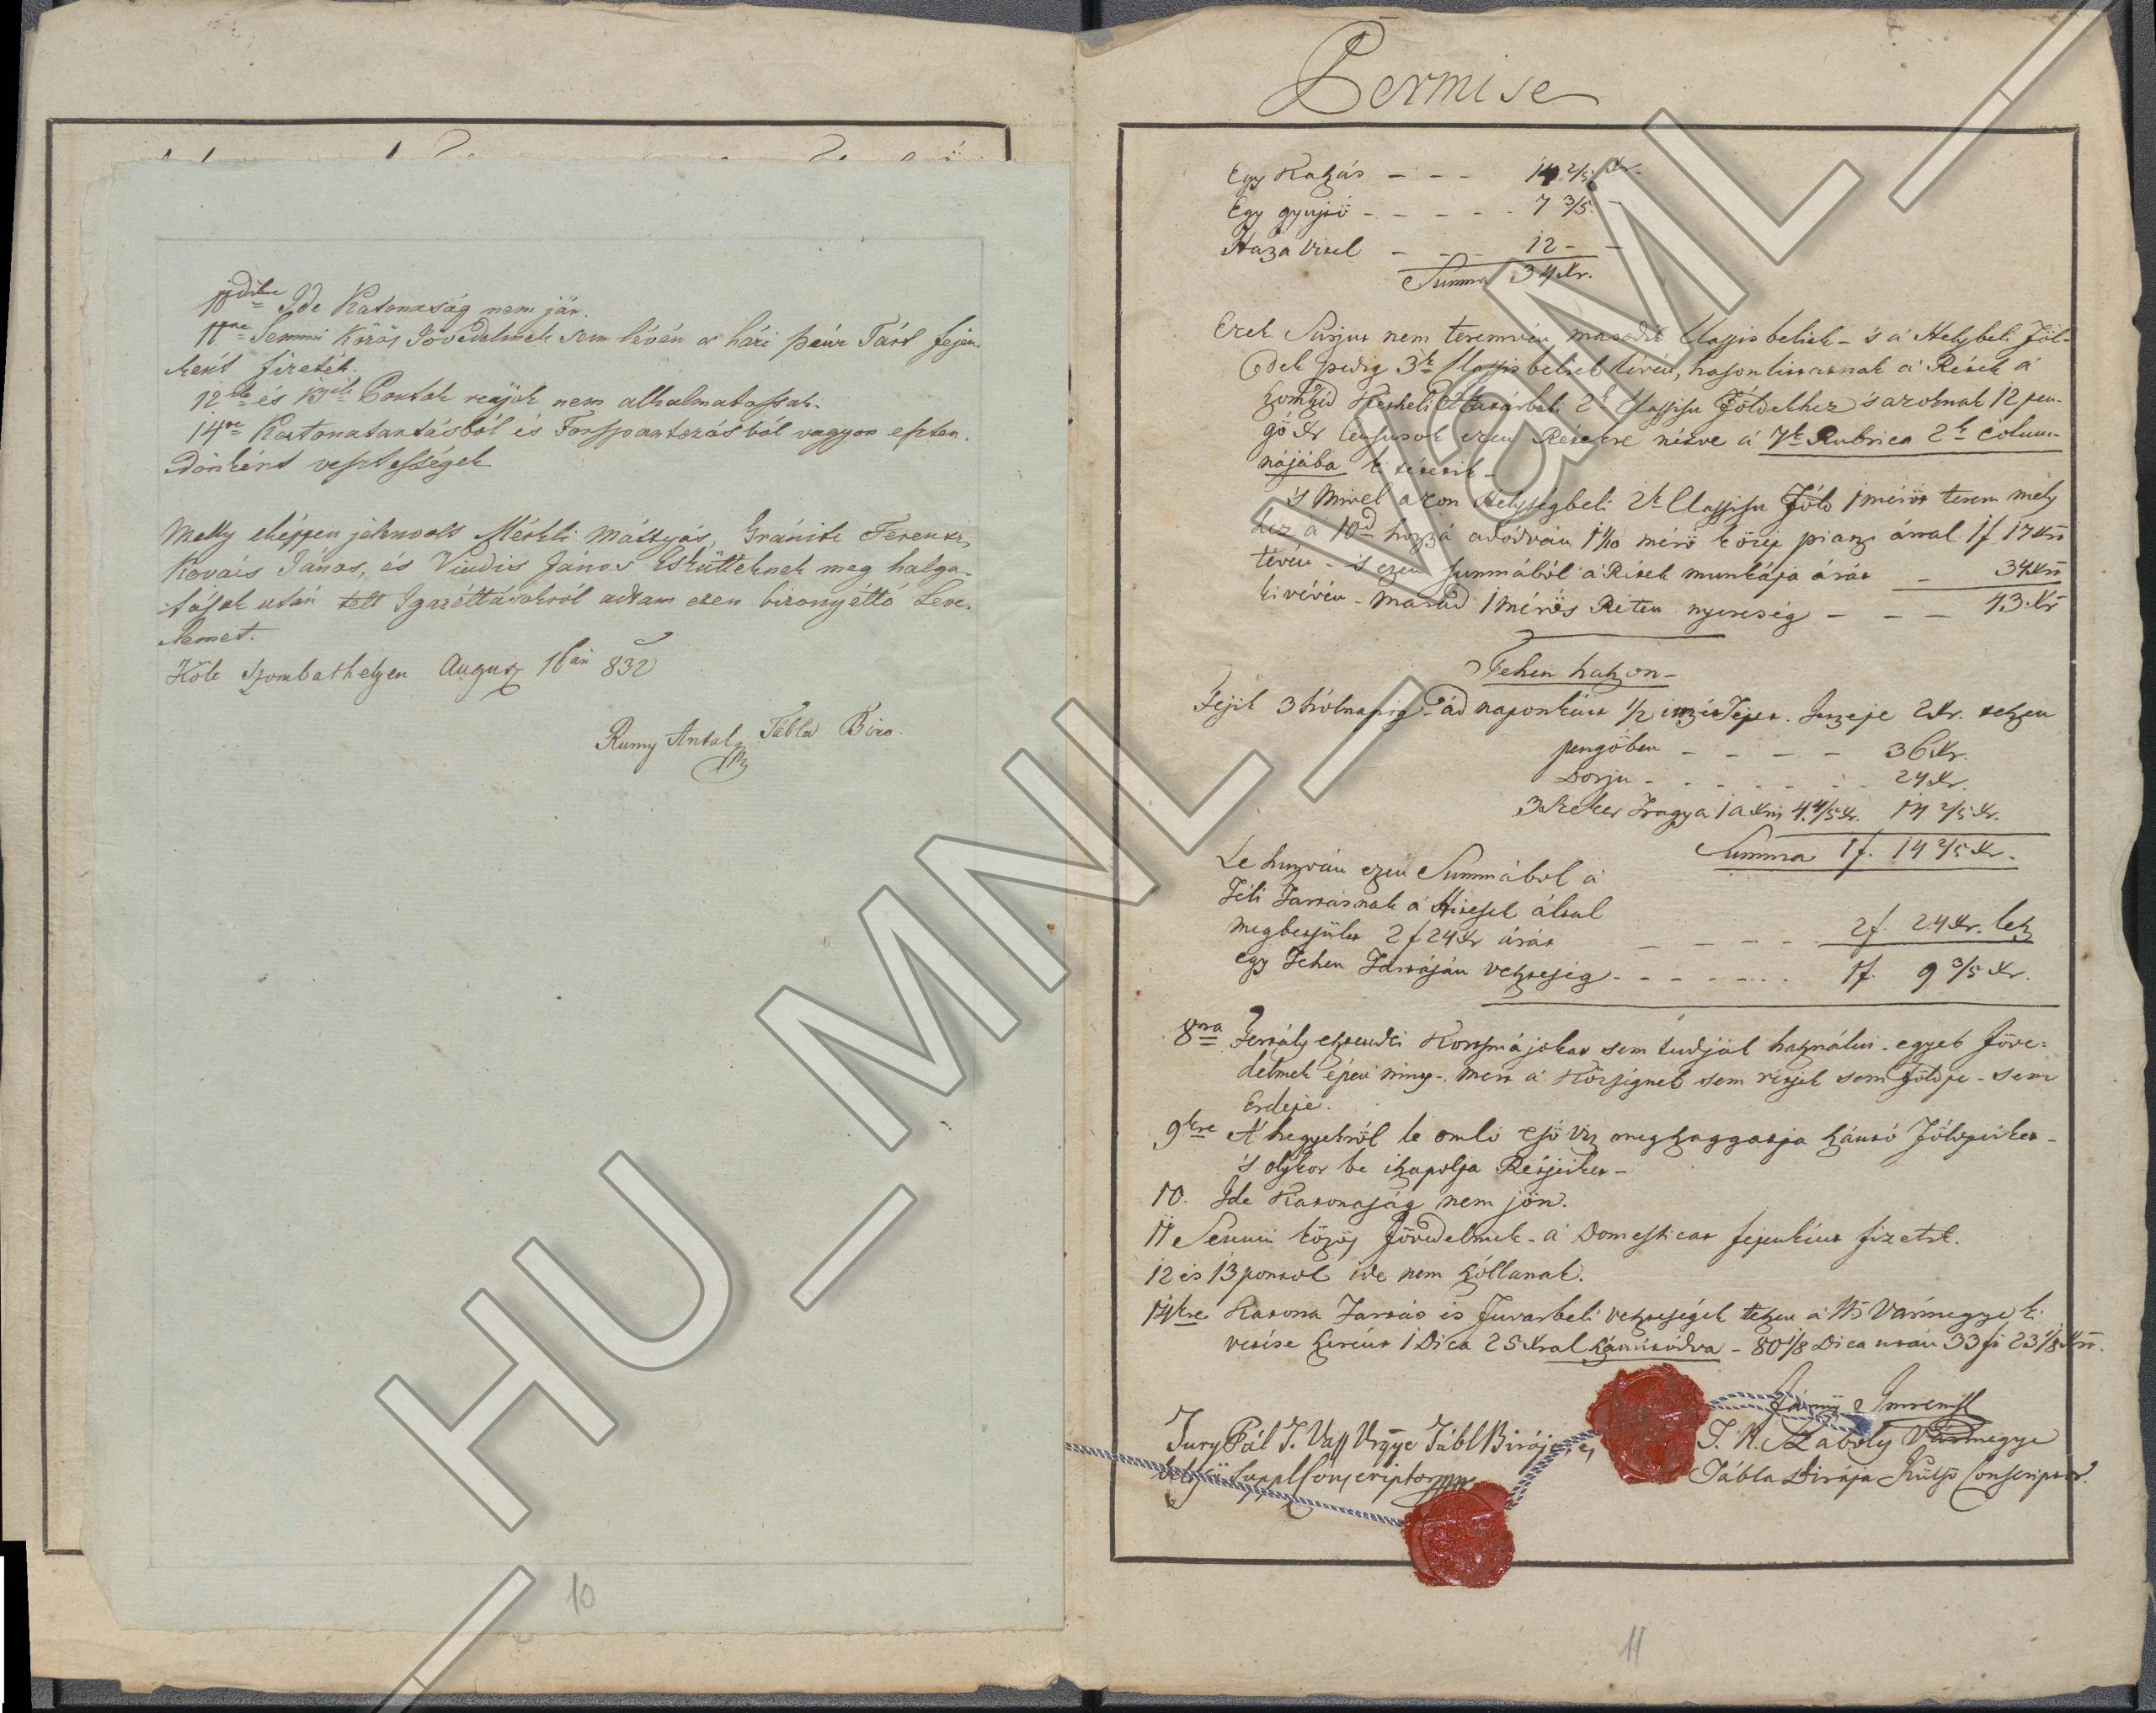 10dikre Ide Katonaság nem jár.
11re Semmi Közös Jövedelmek sem lévén a házi pénz Tárt fejen-
ként fizetik.
12ik és 13ik Pontok reájok nem alkalmatossak.
14re Katonatartásból és Forspontozásból vagyon eszten-
dönként vesztességek
Melly eképpen jelenvolt Mérkli Mátyás, Gránitz Ferentz,
Kováts János, és Vindis János Esküttöknek meg halga-
tások után tett Igazéttásokról adtam ezen bizonyéttó Leve-
lemet.
Költ Szombathelyen August 16án 832
Rumy Antal Tábla Biro
10
Permise
Egy Kaszás – – – 14 2/5 Xr.
Egy gyujtö – – – – 7 3/5 –
Haza vitel – – – 12 – –
Summa 34 Xr.
Ezek Sarjut nem teremvén masodik Classisbeliek – 's a Helybeli Föl-
dek pedig 3k Classisbeliek lévén, hasonlittatnak a Rétek a
2k Classisu Földekhez 's azoknak 12 pen-
gö Xr Censusok ezen Rétekre nézve a 7k Rubrica 2k Colum-
nájába ki tétetik –
's Mivel azon Helységbeli 2k Classisu Föld 1 mérőt terem mely
hez a 10d hozzá adódván 1 1/10 mérő közép piarzi árral 1f 17 Xrt
tevén – 's ezen summából a Rétek munkája árát – 34 Xrt
ki vévén – marad 1 mérős Réten nyereség – – – 43 Xr
Tehen haszon –
Fejik 3 hólnapig – ád naponként 1/2 itzés Tejet. Itzeje 2 Xr. teszen
pengőben – – – – 36 Xr.
Borju – – – – – – 24 Xr.
3 Szeker Tragya 1 a Xrii 4 4/5 Xr. 14 2/5 Xr.
Summa 1f. 14 2/5 Xr.
Le huzván ezen Summábol a
Téli Tartásnak a Hitesek által
megbetsült 2f 24 Xr árát – – – – 2f. 24 Xr. lesz
egy Tehen Tartáján veszteség – – – – – – 1f. 9 3/5 Xr.
8ra Fertály esztendei Kortsmájokat sem tudják használni – egyeb Jöve-
delmek épen nints – mert a Községnek sem rétjek sem földje – sem
Erdeje.
9kre A' hegyekröl le omló eső viz megszaggatja szántó Földjeiket –
's olykor be iszapolja Rétjeiket –
10. Ide Katonaság nem jön.
11 Semmi közös Jövedelmek – a Domesticat fejenként fizetik.
12 és 13 pontok ide nem szóllanak.
14kre Katona Tartás és Fuvarbeli veszteségek teszen a Ns Vármegye ki
vetése szerént 1 Dica 25 Xral számitódva – 80 1/8 Dica után 33 fr 23 1/8 Xrt.
Jury Pál T. Vass Vrgye Tábl Birája, és
belső Suppl Conscriptor
Imre
T. N. Szaboly Vármegye
Tábla Birája Külső Conscriptor.
11
HU_MNL_VaML_